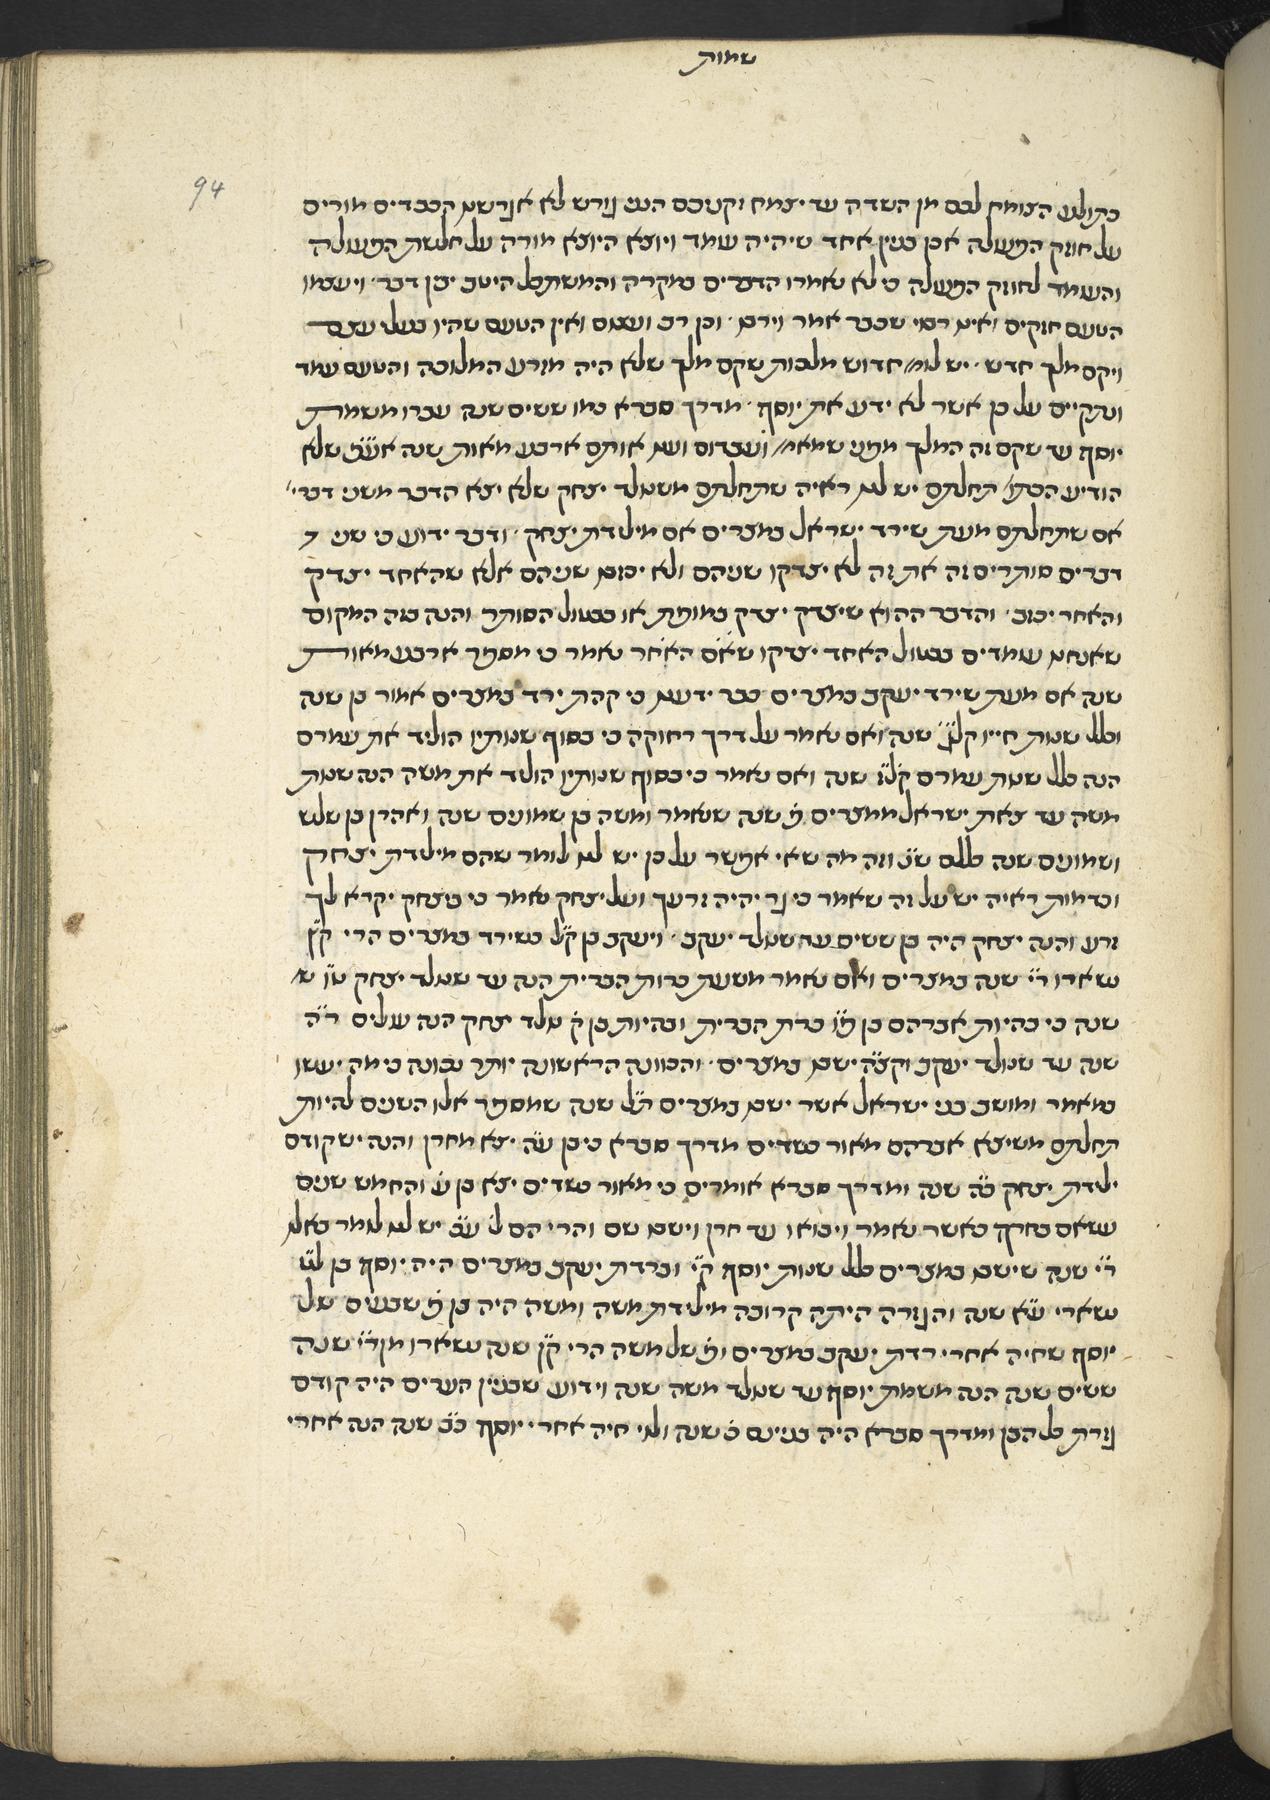 שמות
94
כתולע הצומח לכם מן השדה עד יצמח וקניכם הנני גורש לא אגרשם הכבדים מורים
על חוזק הפעולה אכן בנין אחד שיהיה עומד ויוצא היוצא מורה על חלשת הפעולה
והעומד לחוזק הפעולה כי לא נאמרו הדברים במקרה והמשתכל היטב יבין דבר ויעצמו
הטעם חזקים ואינם רבי שכבר אמר וירבו וכן רב ועצום ואין הטעם שהיו בעלי עצם
ויקם מלך חדש יש חדוש מלכות שקם מלך שלא היה מזרע המלוכה והטעם עמד
ונתקיים על כן אשר לא ידע את יוסף מדרך סברא כמו ששים שנה עברו משמת
יוסף עד שקם זה המלך מפני שמאמ׳ ועבדום וענו אותם ארבע מאות שנה אע״פ שלא
הודיע הכתו׳ תחלתם יש לנו ראיה שתחלתם משנולד יצחק שלא יצא הדבר משני דברי׳
אם שתחלתם מעת שירד ישראל במצרים אם מלידת יצחק ודבר ידוע כי שני
דברים סותרים זה את זה לא יצדקו שניהם ולא יכזבו שניהם אלא שהאחד יצדק
והאחר יכזב והדבר ההוא שיצדק יצדק במופת או בבטול הסותר והנה בזה המקום
שאנחנו עומדים בבטול האחד יצדקו שאם האחר נאמר כי מספר ארבע מאות
שנה אם מעת שירד יעקב במצרים כבר ידענו כי קהת ירד במצרים אמור בן שנה
וכלל שנות חייו קל״ג שנה ואם נאמר על דרך רחוקה כי בסוף שנותיו הוליד את עמרם
הנה כלל שנות עמרם קל״ז שנה ואם נאמר כי בסוף שנותיו הוליד את משה הנה שנות
משה עד צאת ישראל ממצרים פ׳ שנה שנאמר ומשה בן שמונים שנה ואהרן בן שלש
ושמונים שנה כללם ש״נ וזה מה שאי אפשר על כן יש לנו לומר שהם מלידת יצחק
וכדמות ראיה יש על זה שאמר כי גר יהיה זרעך ועל יצחק נאמר כי ביצחק יקרא לך
זרע והנה יצחק היה בן ששים עד שנולד יעקב ויעקב בן ק״ל כשירד במצרים הרי ק״ץ
נשארו ר״י שנה במצרים ואם נאמר משעת כרות הברית הנה עד שנולד יצחק
שנה כי בהיות אברהם בן פ״ו כרת הברית ובהיות בן ק׳ נולד יצחק הנה עולים
שנה עד שנולד יעקב וקצ״ה ישבו במצרים והכוונה הראשונה יותר נכונה כי מה יעשו
במאמר ומושב בני ישראל אשר ישבו במצרים ת״ל שנה שמספר אלו השנים להיות
תחלתם משיצא אברהם מאור כשדים מדרך סברא כי בן ע״ה יצא מחרן והנה יש קודם
לידת יצחק כ״ה שנה ומדרך סברא אומרים כי מאור כשדים יצא בן ע׳ והחמש שנים
עשאם בחרן כאשר נאמר ויבואו עד חרן וישבו שם והרי הם ל׳ יש לנו לומר כאלו
ר״י שנה שישבו במצרים כלל שנות יוסף ק״י וברדת יעקב במצרים היה יוסף בן ל״ט
נשארי ע״א שנה והגזרה היתה קרובה מלידת משה ומשה היה בן פ׳ שבעים של
יוסף שחיה אחרי רדת יעקב במצרים ופ׳ של משה הרי ק״ן שנה נשארו מן ר״י שנה
ששים שנה הנה משמת יוסף עד שנולד משה שנה וידוע שבנין הערים היה קודם
גזרת כל הבן ומדרך סברא היה בנינם שנה ולוי חיה אחרי יוסף כ״ב שנה הנה אחרי